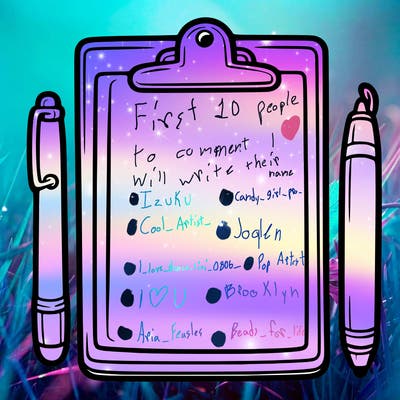 First 10 people
to comment I
will write their
name
Izuku Candy_girl_po-
Cool_Artist_ Joglen
Pop Artist
I ♡ U Brooklyn
Aria_Feusles Beads_for_life